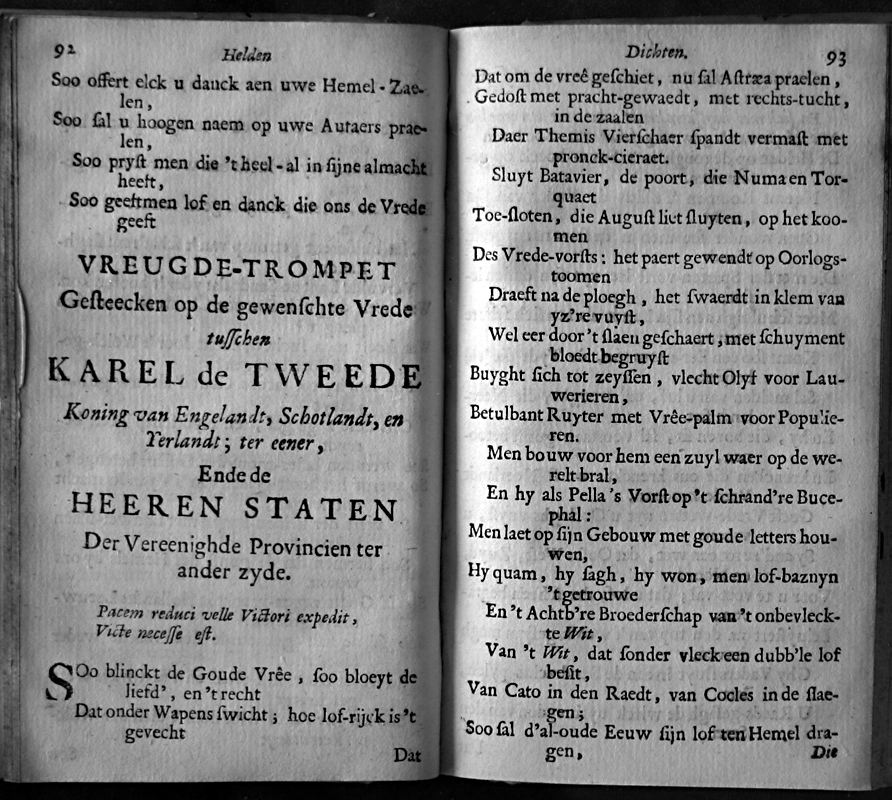 92
Helden
Soo offert elck u danck aen uwe Hemel-Zae-
len,
Soo ſal u hoogen naem op uwe Autaers prae-
len,
Soo pryſt men die 't heel-al in ſijne almacht
heeft,
Soo geeftmen lof en danck die ons de Vrede
geeft
VREUGDE-TROMPET
Geſteecken op de gewenſchte Vrede
tuſſchen
KAREL de TWEEDE
Koning van Engelandt, Schotlandt, en
Yerlandt; ter eener,
Ende de
HEEREN STATEN
Der Vereenighde Provincien ter
ander zyde.
Pacem reduci velle Victori expedit,
Victe neceſſe eſt.
SOo blinckt de Goude Vrêe, ſoo bloeyt de
liefd', en 't recht
Dat onder Wapens ſwicht; hoe lof-rijck is 't
gevecht
Dat
Dichten.
93
Dat om de vreê geſchiet, nu ſal Aſtræa praelen,
Gedoſt met pracht-gewaedt, met rechts-tucht,
in de zaalen
Daer Themis Vierſchaer ſpandt vermaſt met
pronck-cieraet.
Sluyt Batavier, de poort, die Numa en Tor-
quaet
Toe-ſloten, die Auguſt liet ſluyten, op het koo-
men
Des Vrede-vorſts: het paert gewendt op Oorlogs-
toomen
Draeft na de ploegh, het ſwaerdt in klem van
yz're vuyſt,
Wel eer door 't ſlaen geſchaert, met ſchuyment
bloedt begruyſt
Buyght ſich tot zeyſſen, vlecht Olyf voor Lau-
werieren,
Betulbant Ruyter met Vrêe-palm voor Populie-
ren.
Men bouw voor hem een zuyl waer op de we-
relt bral,
En hy als Pella's Vorſt op 't ſchrand're Buce-
phal:
Men laet op ſijn Gebouw met goude letters hou-
wen,
Hy quam, hy ſagh, hy won, men lof-baznyn
't getrouwe
En 't Achtb're Broederſchap van 't onbevleck-
te Wit,
Van 't Wit, dat ſonder vleck een dubb'le lof
beſit,
Van Cato in den Raedt, van Cocles in de ſlae-
gen;
Soo ſal d'al-oude Eeuw ſijn lof ten Hemel dra-
gen,
Die